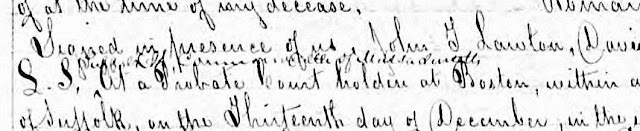 of at the time of my decease.
Signed in presence of us, John F Lawton, Davi
Suffolk SS. Commonwealth of Massachusetts
L. S. At a Probate Court holden at Boston, within a
of Suffolk, on the Thirteenth day of December, in the